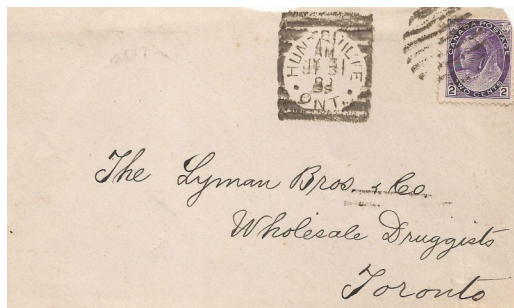 HUNTSVILLE
AM
JY 31
ONT.
CANADA POSTAGE
2 TWO CENTS 2
The Lyman Bros. & Co.
Wholesale Druggists
Toronto